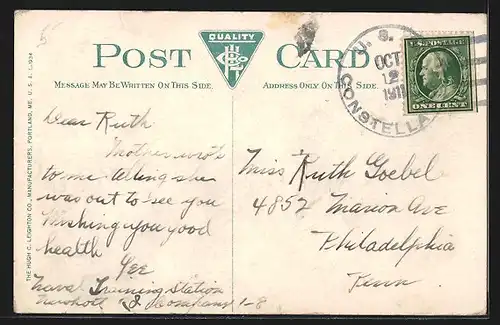 POST CARD
QUALITY
MESSAGE MAY BE WRITTEN ON THIS SIDE.
ADDRESS ONLY ON THIS SIDE.
U.S.
OCT
12
1911
CONSTELLA
U.S. POSTAGE
ONE CENT
THE HUGH C. LEIGHTON CO., MANUFACTURERS, PORTLAND, ME. U.S.A.
Dear Ruth
Mother wrote
to me telling she
was out to see you
Wishing you good
health
Naval Training Station
Company 1-8
Miss Ruth Goebel
4852 Marion Ave
Philadelphia
Penn